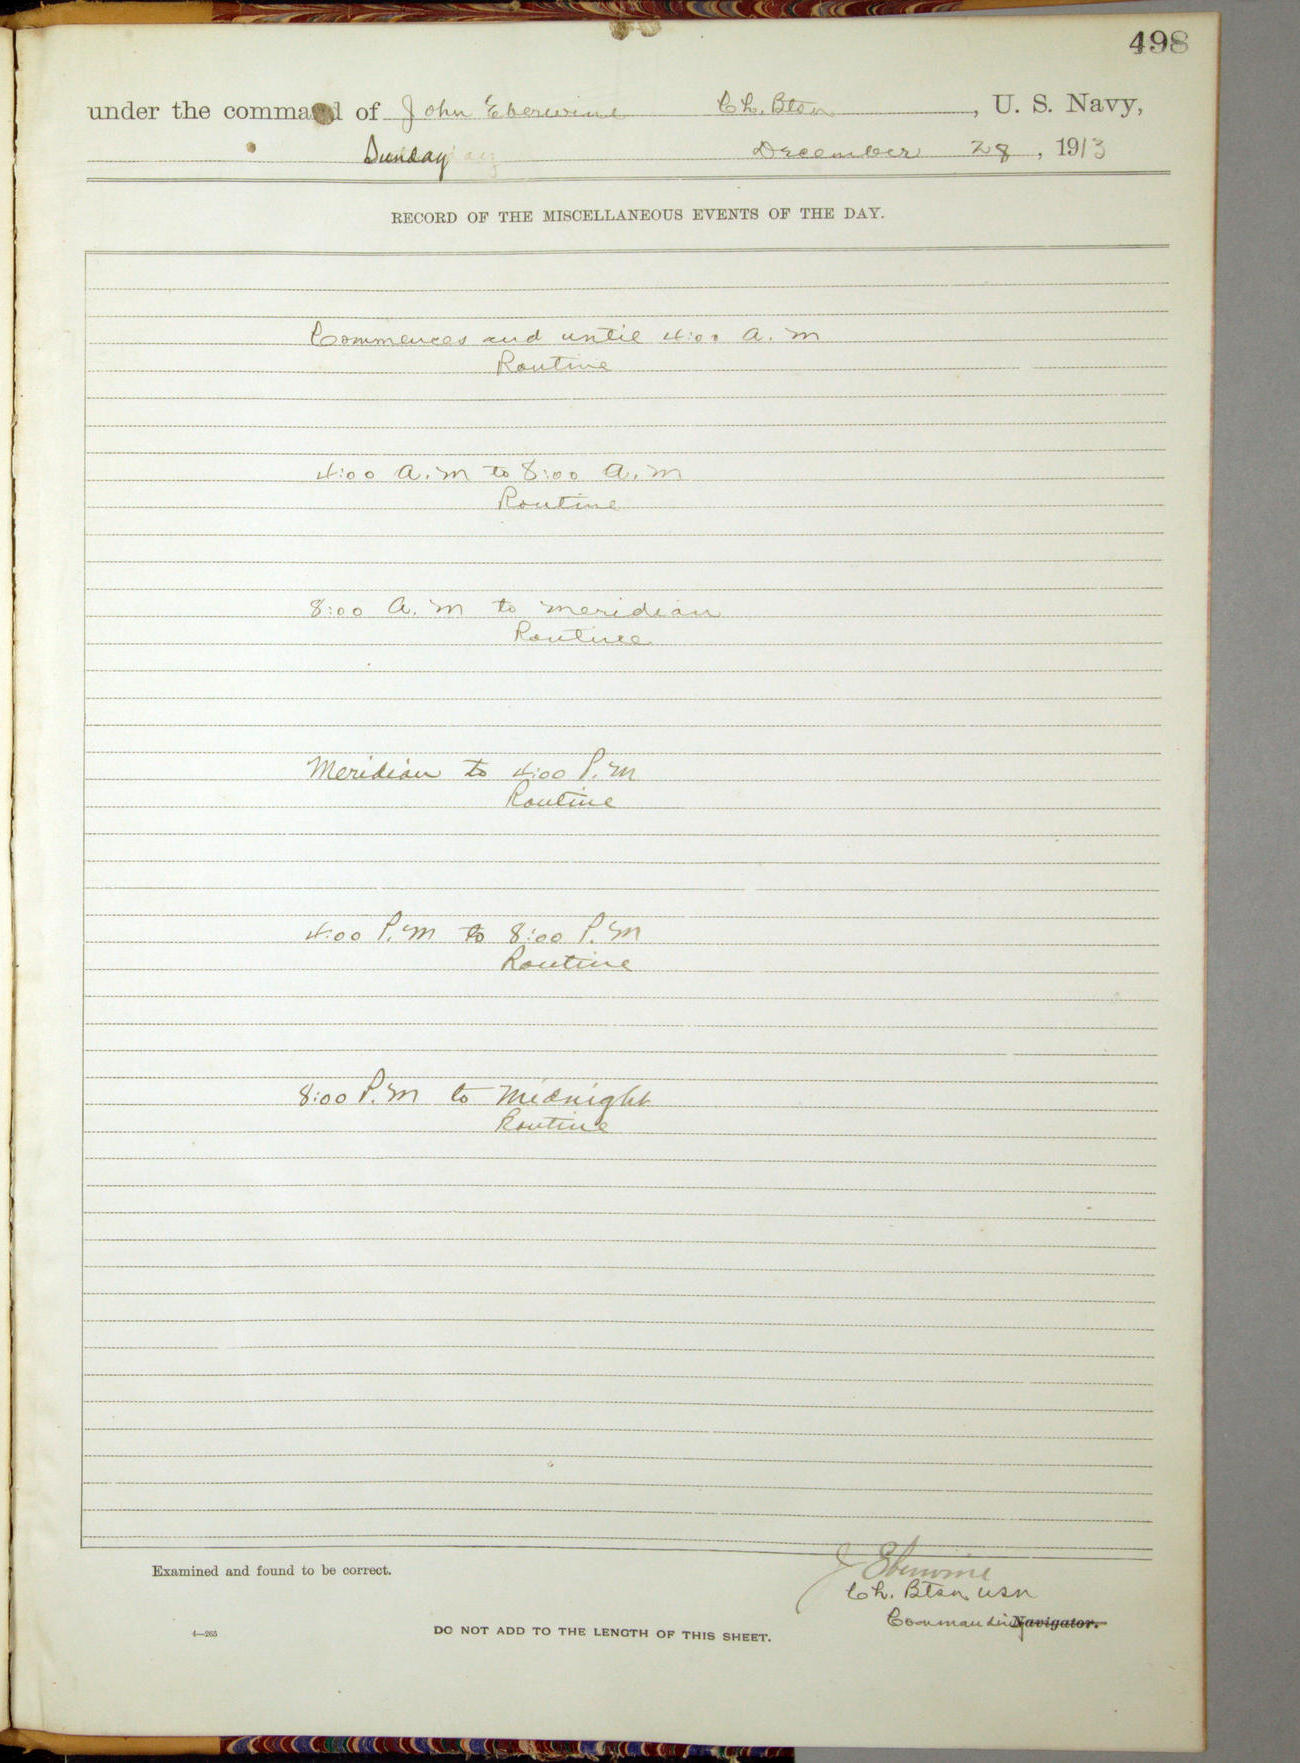 498
under the command of John Eberwine Ch. Btsn, U. S. Navy,
Sunday December 28, 1913
RECORD OF THE MISCELLANEOUS EVENTS OF THE DAY.
Commences and until 4:00 A. M
Routine
4:00 A. M to 8:00 A. M
Routine
8:00 A. M to Meridian
Routine
Meridian to 4:00 P. M
Routine
4:00 P. M to 8:00 P. M
Routine
8:00 P. M to Midnight
Routine
J Eberwine
Examined and found to be correct.
Ch. Btsn USN
Commanding Navigator.
4—265
DO NOT ADD TO THE LENGTH OF THIS SHEET.